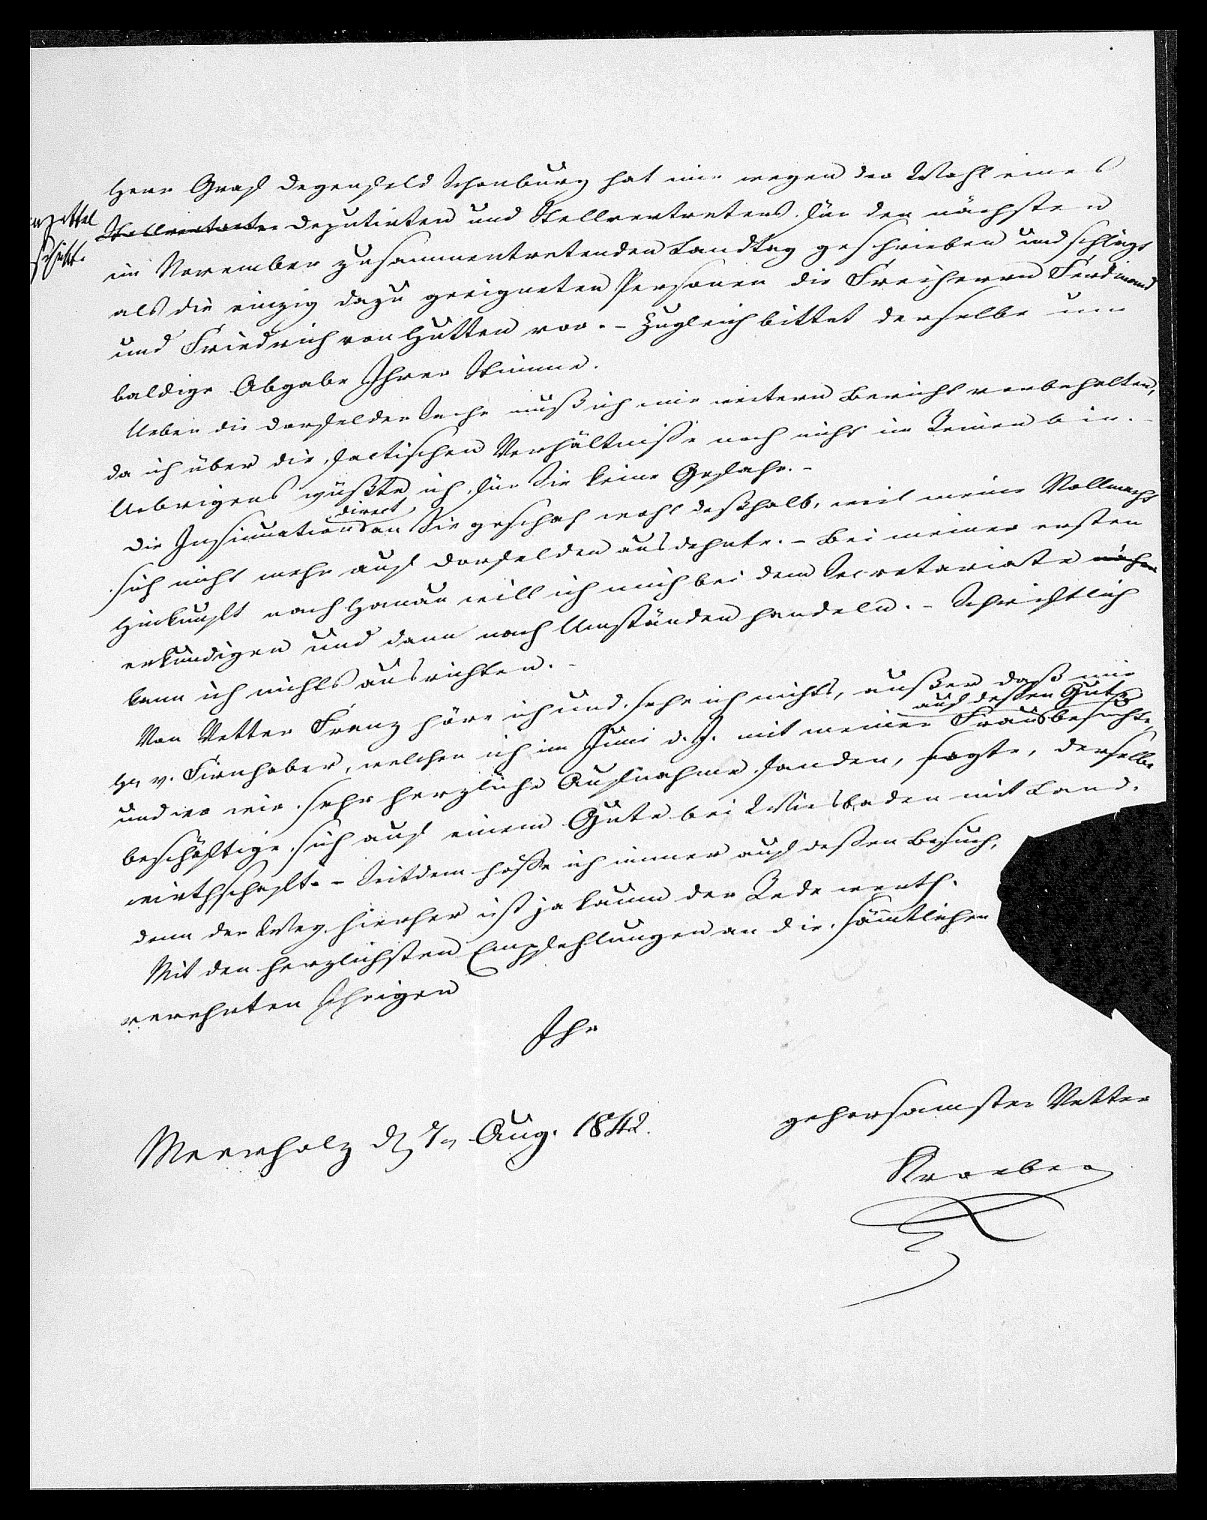 Herr Graf Degenfeld Schonburg hat mir wegen der Wahl eines
Stellvertreter Deputirten und Stellvertreters für den nächsten
im November zusammentretenden Landtag geschrieben und schlägt
als die einzig dazu geeigneten Personen die Freiherrn Ferdinand
und Friedrich von Hutten vor. – Zugleich bittet derselbe um
baldige Abgabe Ihrer Stimme.
Ueber die Dorfelder Sache muß ich mir weitern Bericht vorbehalten,
da ich über die factischen Verhältniße noch nicht im Reinen bin. –
Uebrigens wüßte ich für Sie keine Gefahr. –
direct
Die Insinuation an Sie geschah wohl deßhalb, weil meine Vollmacht
sich nicht mehr auf Dorfelden ausdehnte. – Bei meiner ersten
Hinkunft nach Hanau will ich mich bei dem Secretariate näher
erkundigen und dann nach Umständen handeln. – Schriftlich
kann ich nichts ausrichten. –
Von Vetter Franz höre ich und sehe ich nichts, außer daß mir
auf deßen Gute
H. v. Firnhaber, welchen ich im Juni d. J. mit meiner Frau besuchte,
und wo wir sehr herzliche Aufnahme fanden, sagte, derselbe
beschäftige sich auf einem Gute bei Wiesbaden mit Land-
wirthschaft. – Seitdem hoffe ich immer auf deßen Besuch,
denn der Weg hierher ist ja kaum der Rede werth.
Mit den herzlichsten Empfehlungen an die sämtlichen
verehrten Ihrigen
Ihr
gehorsamster Vetter
Meerholz d. Aug. 1842.